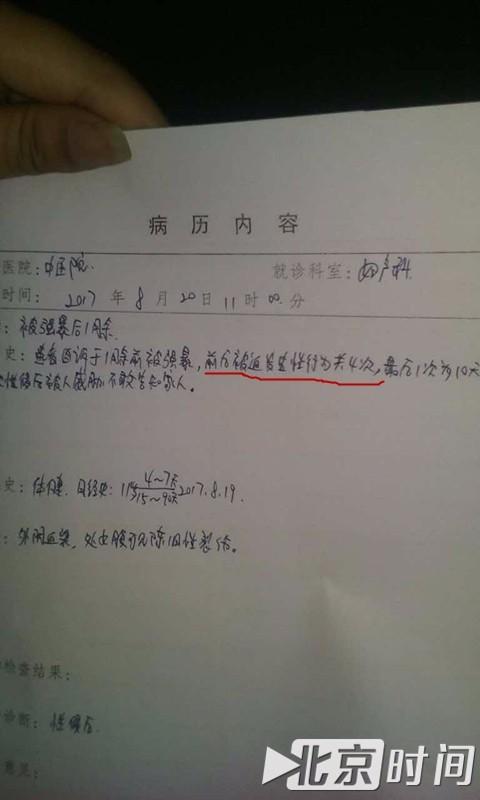 病历内容
医院：中医院 就诊科室：妇产科
时间：2017年8月20日11时00分
：被强暴后1周余
史：患者自诉于1周余前被强暴，前后被迫发生性行为共4次，最后1次为10天
性侵后被人威胁不敢告知家人。
史：体健，月经史：11岁 4～7天/15～90天 2017.8.19.
：外阴正常，处女膜可见陈旧性裂伤。
检查结果：
诊断：性侵后
意见：
北京时间